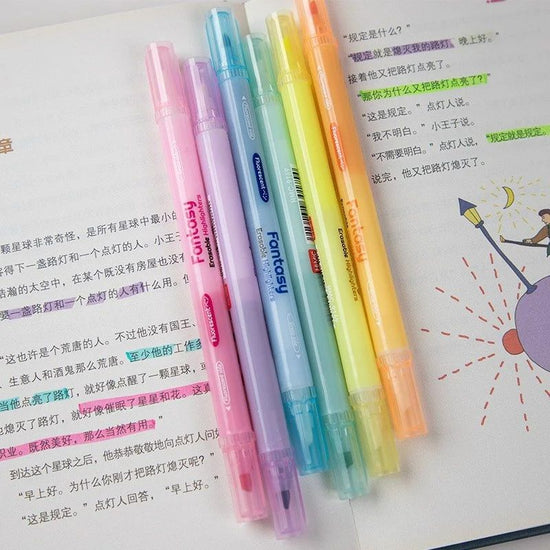 章
颗星球非常奇怪，是所有星球中最小的
得下一盏路灯和一个点灯的人。小王子
浩瀚的太空中，在某个既没有房屋也没有
一盏路灯和一个点灯的人有什么用。但
"这也许是个荒唐的人。不过他没有国王、
、生意人和酒鬼那么荒唐。至少他的工作
当他点亮了路灯，就好像点醒了一颗星球，或
他熄灭了路灯，就好像催眠了星星和花。这真
职业。既然美好，那么当然有用。"
到达这个星球之后，他恭恭敬敬地向点灯人问好
"早上好。为什么你刚才把路灯熄灭呢？"
"这是规定。"点灯人回答，"早上好。"
Fantasy
Erasable Highlighters
Fluorescent
Fluorescent
Fantasy
Erasable Highlighters
Fantasy
Erasable Highlighters
"规定是什么？"
"规定就是熄灭我的路灯，晚上好。"
接着他又把路灯点亮了。
"那你为什么又把路灯点亮了？"
"这是规定。"点灯人说。
"我不明白。"小王子说。
"不需要明白。"点灯人说，
"规定就是规定。
说完，他又把路灯熄灭了。